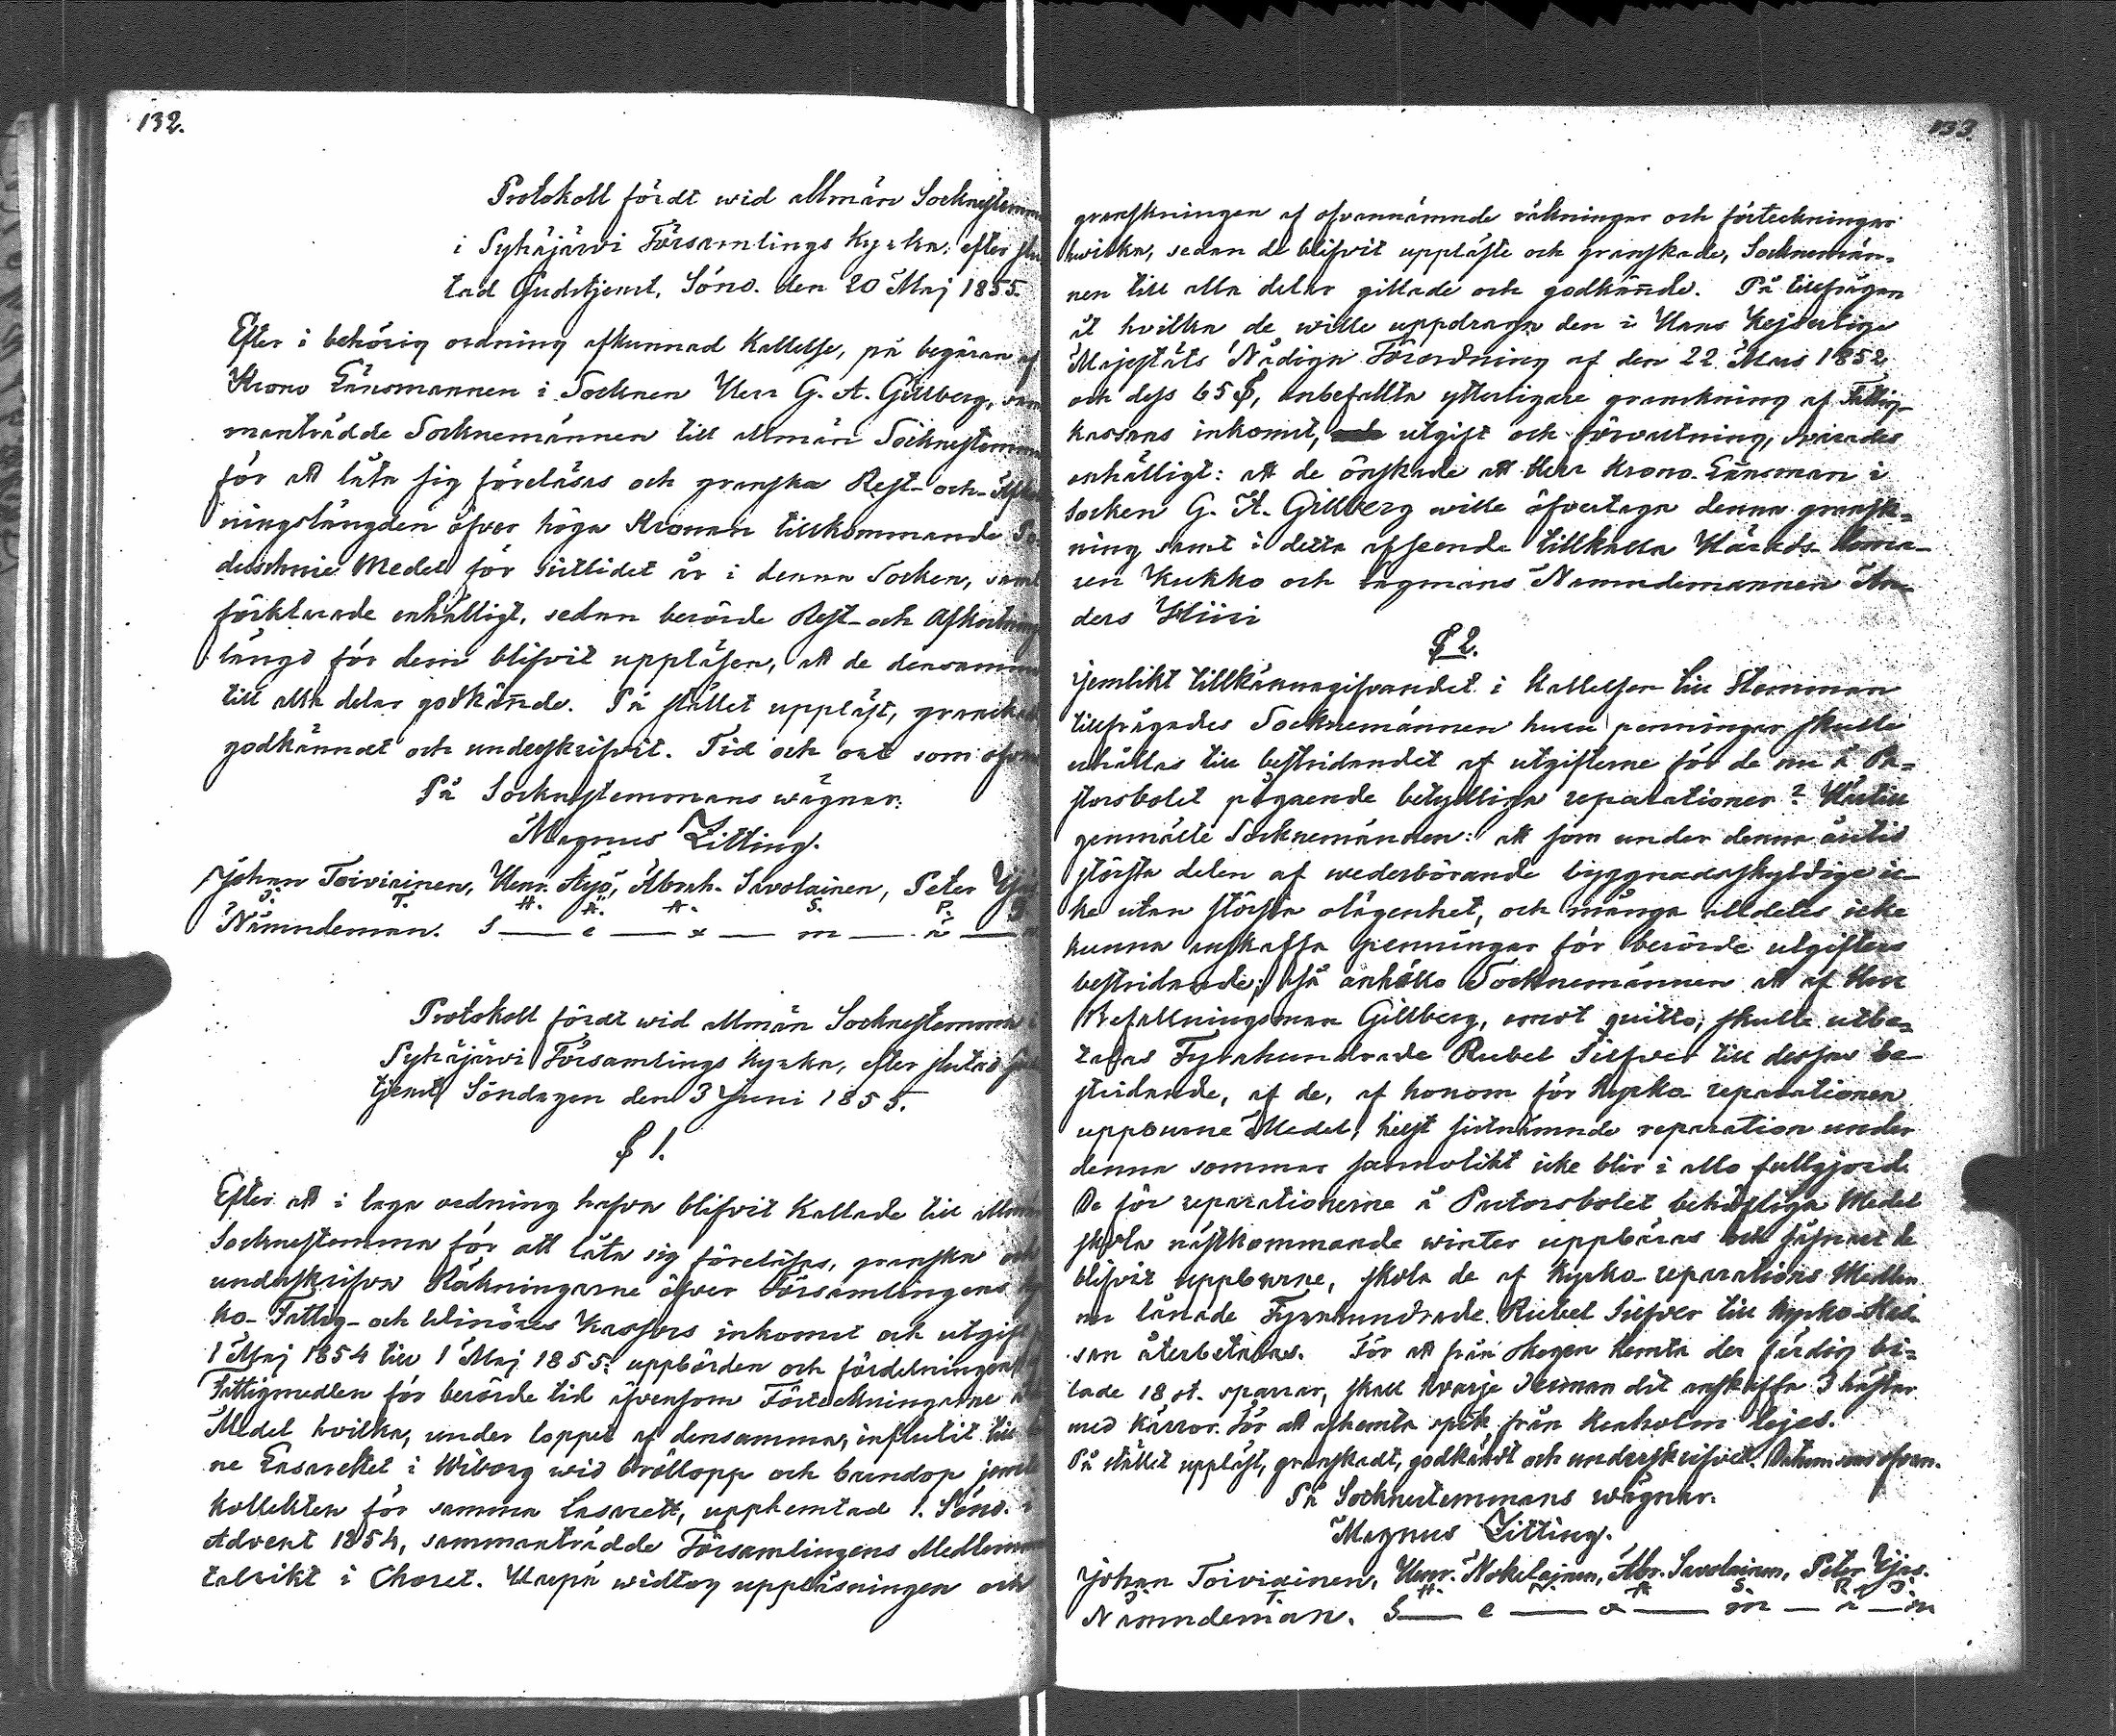 132.
Protokoll fördt wid allmän Sockne stemma
i Pyhäjärvi Församlings Kyrka: efter slu
tad Gudstjenst, Sönd. den 20 Maj 1855.
Efter i behörig ordning afkunnad Kallelse, på begäran af
Krono Länsmannen i Socknen Herr G. A. Gillberg, sam
manträdde Socknemännen till allmän Sockne stemma
för att låta sig föreläsas och granska Rest- och Afkort
ningslängden öfver höga Kronan tillkommande
Medel för sistlidet år i denna Socken, samt
förklarade enhälligt, sedan berörde Rest- och Afkortnings
längd för dem blifvit uppläsen, att de densamma
till alla delar godkände. På stället uppläst, granskadt
godkänndt och underskrifvit. Tid och ort som ofvan
På Socknestemmans wägnar:
Magnus Zitting.
Johan Toiviainen, Henr. Äyö, Abrah. Savolainen, Peter
J. T. H. Ä. A. S. P.
Nämndeman. S — e — x — m — ä —
Protokoll fördt wid allmän Socknestemma i
Pyhäjärvi Församlings kyrka, efter slutad Guds
tjenst, Söndagen den 3 Juni 1855.
§ 1.
Efter att i laga ordning hafva blifvit Kallade till allmän
Socknestemma för att låta sig föreläsas, granska och
underskrifva Räkningarne öfver Församlingens
ko- Fattig- och Kassors inkomst och utgift
1 Maj 1854 till 1 Maj 1855: uppbörden och fördelningen af
Fattigmedlen för berörde tid äfvensom Förteckningarne
Medel hvilka, under loppet af densamma, influtit till
ne Lasarettet i Wiborg wid bröllopp och barndop jemte
kollekten för samma Lasarett, upphemtad 1. Sönd. i
Advent 1854, sammanträdde Församlingens Medlemmar
talrikt i Choret. Härpå widtog uppläsningen och
133
granskningen af ofvannämnde räkningar och förteckningar
hwilka, sedan de blifvit uppläste och granskade, Sockne män-
nen till alla delar gillade och godkände. På tillfrågan
åt hvilka de wille uppdraga den i Hans Kejserliga
Majestäts Nådiga Förordning af den 22 Mars 1852
och dess 65 §, anbefallta ytterligare granskning af Fattig-
kassans inkomst, utgift och förvaltning, svarades
enhälligt: att de önskade att Herr Krono-Länsman i
Socken G. A. Gillberg wille öfvertaga denna gransk-
ning samt i detta afseende tillkalla Härads-
ren Kukko och Lagmans Nämndemannen An-
ders Hiiri
§ 2.
Jemlikt tillkännagifvandet i Kallelsen till Stemman
tillfrågades Socknemännen huru penningar skulle
erhållas till bestridandet af utgifterne för de nu å Pa-
storsbolet pågående betydliga reparationer? Härtill
genmälte Socknemännen: att som under denna årstid
största delen af wederbörande byggnadsskyldige ic-
ke utan största olägenhet, och många alldeles icke
kunna anskaffa penningar för berörde utgifters
bestridande; så anhålla Socknemännen att af Herr
Befallningsman Gillberg, emot quitto, skulle utbe-
talas Fyrahundrade Rubel Silfver till dessas be-
stridande, af de, af honom för Kyrko-reparationen
uppburne Medel, helst sistnämnde reparation under
denna sommar sannolikt icke blir i allo fullgjord.
De för reparationerne å Pastorsbolet behöfliga Medel
skola nästkommande winter uppbäras och såsnart de
blifvit uppburne, skola de af Kyrko-reparations Medlen
nu lånade Fyrahundrade Rubel Silfver till Kyrko-Kas-
san återbetalas. För att från skogen hemta der färdig bi-
lade 18 st. sparrar, skall hvarje dit anskaffa 3 hästar
med Kärror. För att afhemta spik från Kexholm lejes.
På stället uppläst, granskadt, godkändt och underskrifvit. Datum som ofvan.
På Socknestemmans wägnar.
Magnus Zitting.
Johan Toiviainen, Henr. Nokelainen, Abr. Savolainen, Peter Ijäs.
J. T. H. N. A. S. P. J.
Nämndeman. S — e — x — m — ä — n